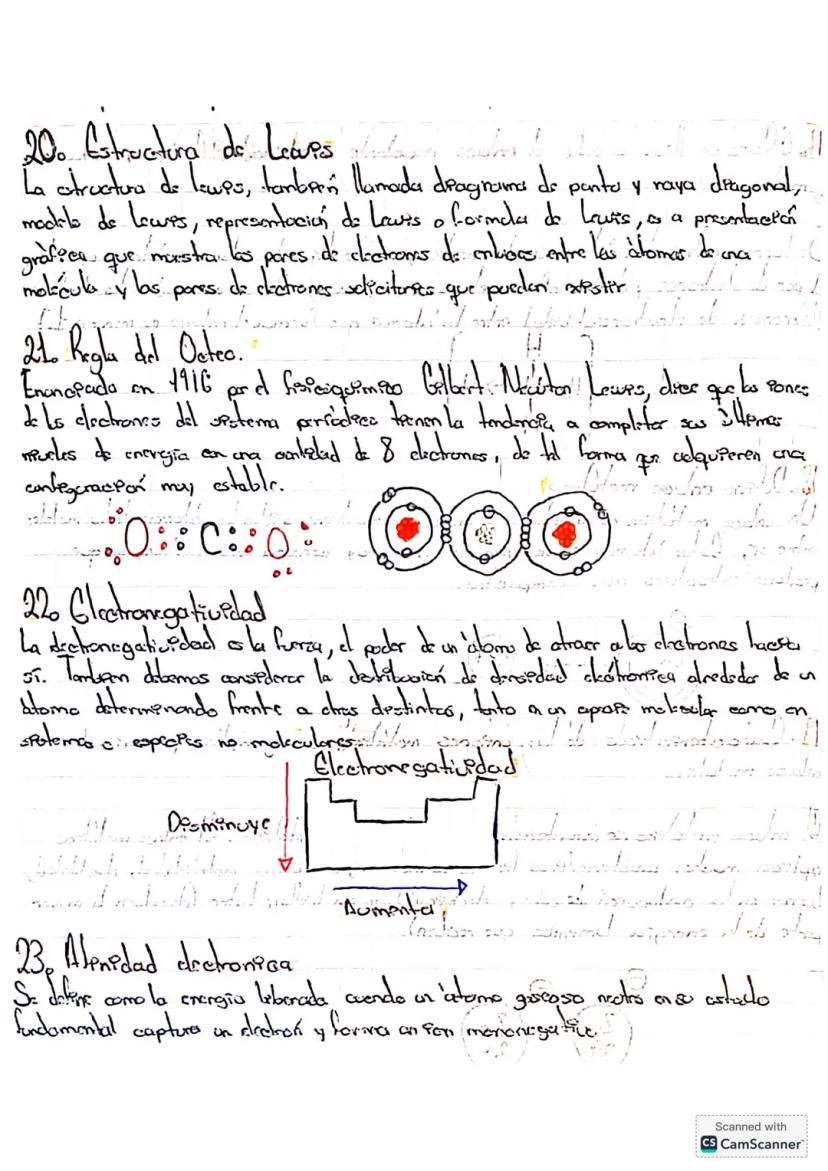 20. Estructura de Lewis
La estructura de lewis, también llamada diagrama de punto y raya diagonal,
modelo de Lewis, representación de Lewis o formula de Lewis, es a presentación
gráfica que muestra los pares de electrons de enlaces entre las átomos de una
molécula y los pares de electrones solicitaries que pueden existir
21. Regla del Octeo.
Enunciada en 1916 por el fisicoquímico Gilbert Newton Lewis, dice que los iones
de ls electrones del sistema periódico tienen la tendencia a completar sus últimos
niveles de energía en una cantidad de 8 electrones, de tal forma que adquieren una
configuración muy estable.
O C O
22. Electronegatividad
La electronegatividad es la fuerza, el poder de un átomo de atraer a los electrones hacia
sí. Tambien debemos considerar la distribución de densidad electrónica alrededor de un
átomo determinando frente a otros distintos, tanto en un molecular como en
sistemas o especies no moleculares
Electronegatividad
Disminuye
Aumenta
23. Afinidad electronica
Se define como la energia liberada cuando un átomo gaseoso neutro en su estado
fundamental captura un electrón y forma un ion mononegativo
Scanned with
CS CamScanner